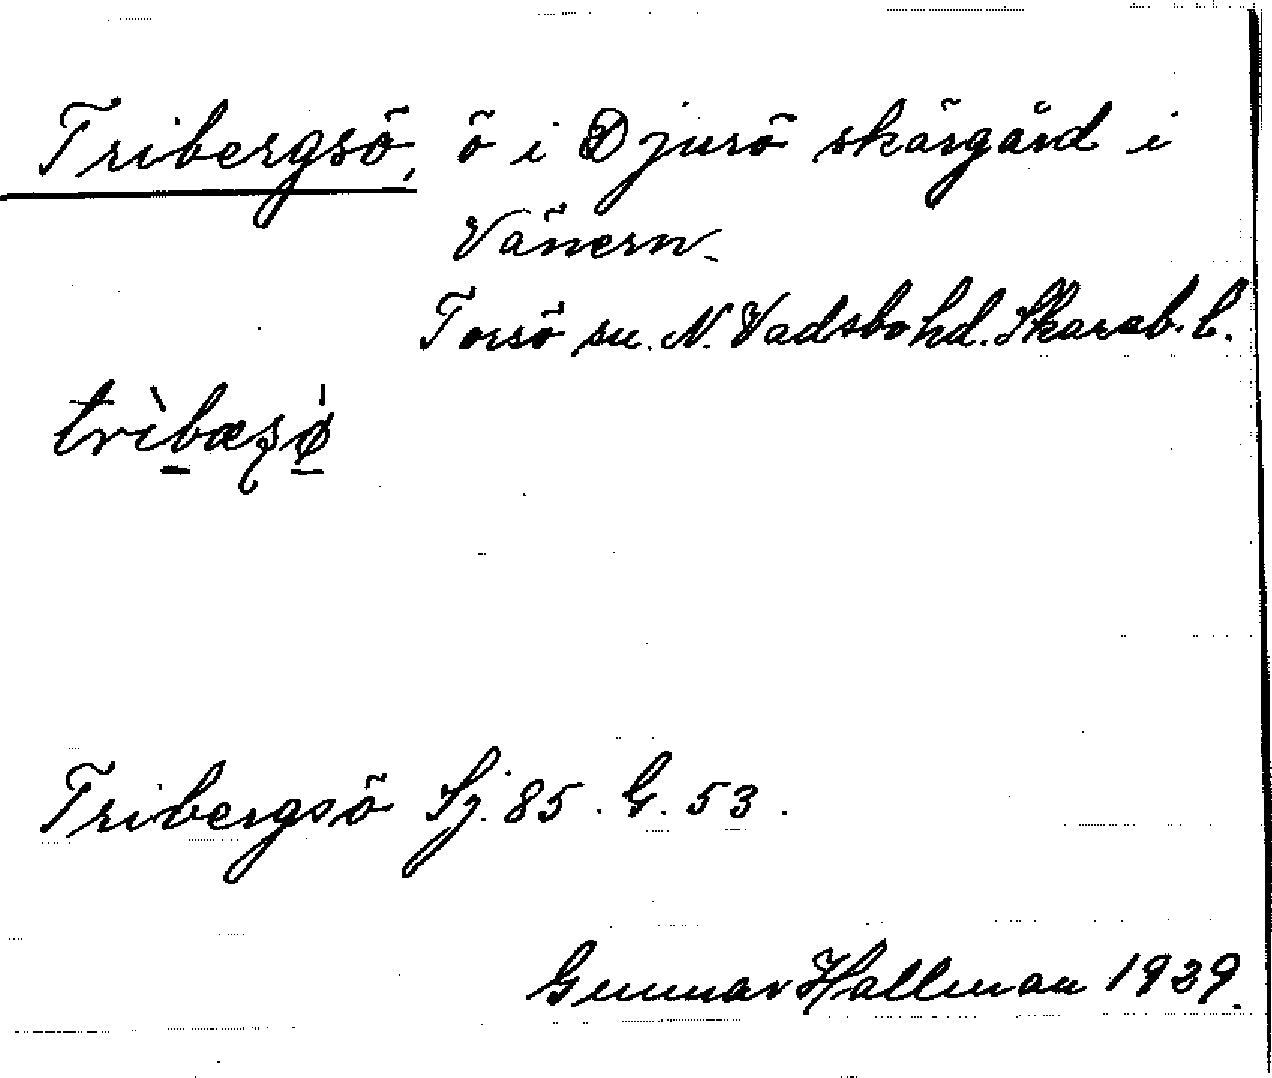 Tribergsö, ö i Djurö skärgård i
Vänern.
Torsö sn. N. Vadsbo hd. Skarab. l.
trìbæʂø̍
Tribergsö Sj. 85. G. 53.
Gunnar Hallman 1939.